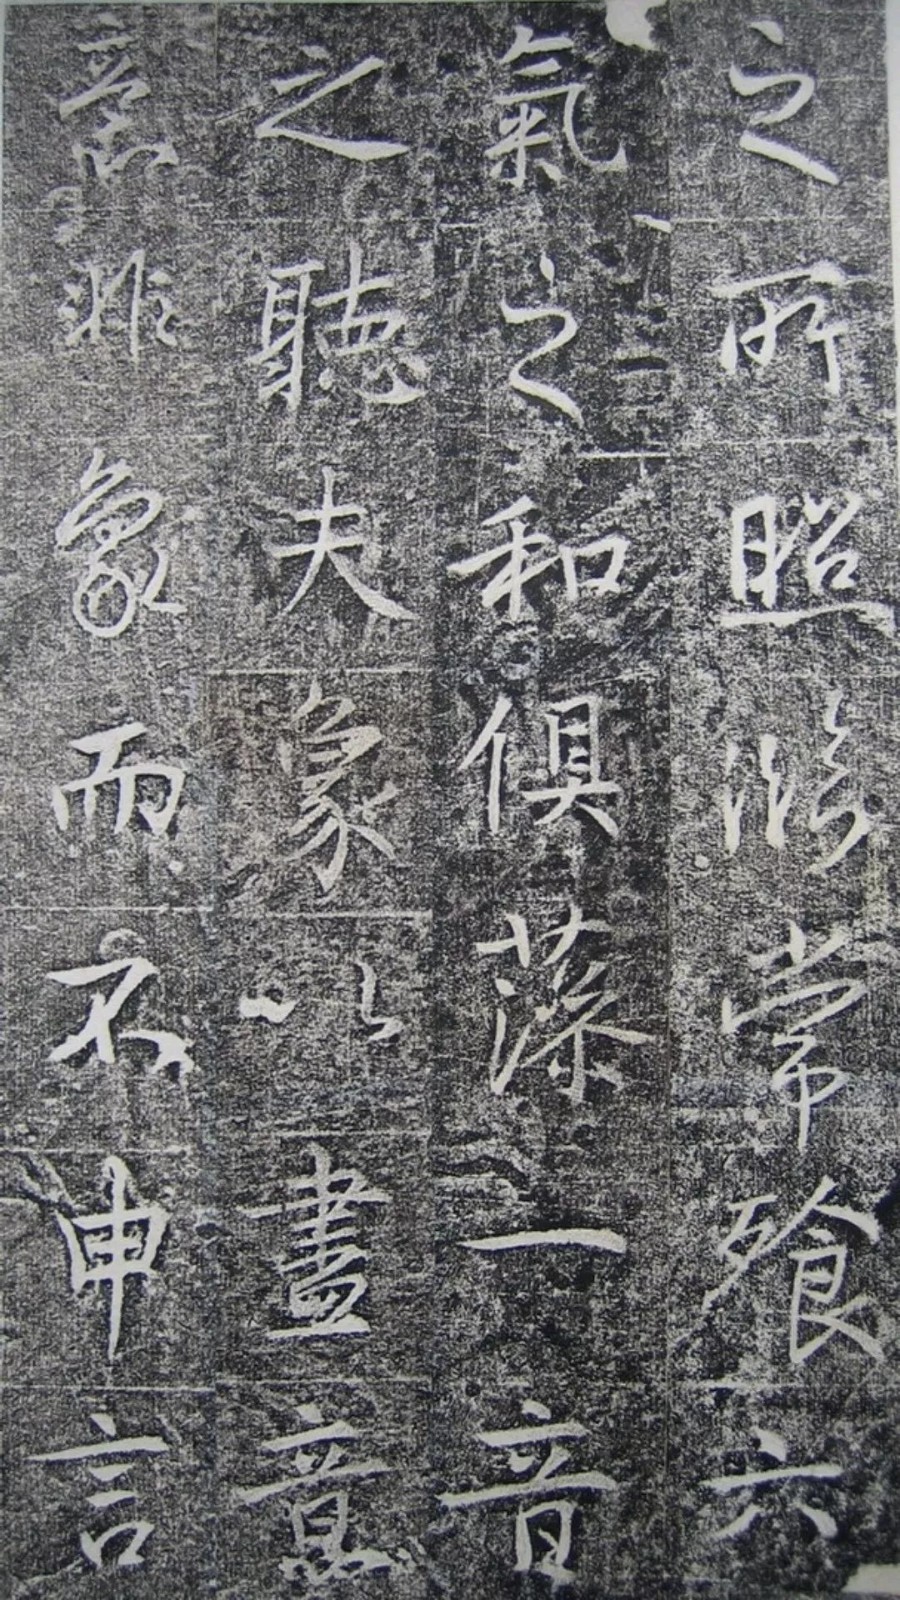 之所照常飱六
氣之和俱一音
之聽夫象以盡意
意非象而不申言